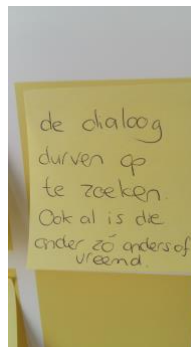 de dialoog
durven op
te zoeken.
Ook al is die
ander zó anders of
vreemd.